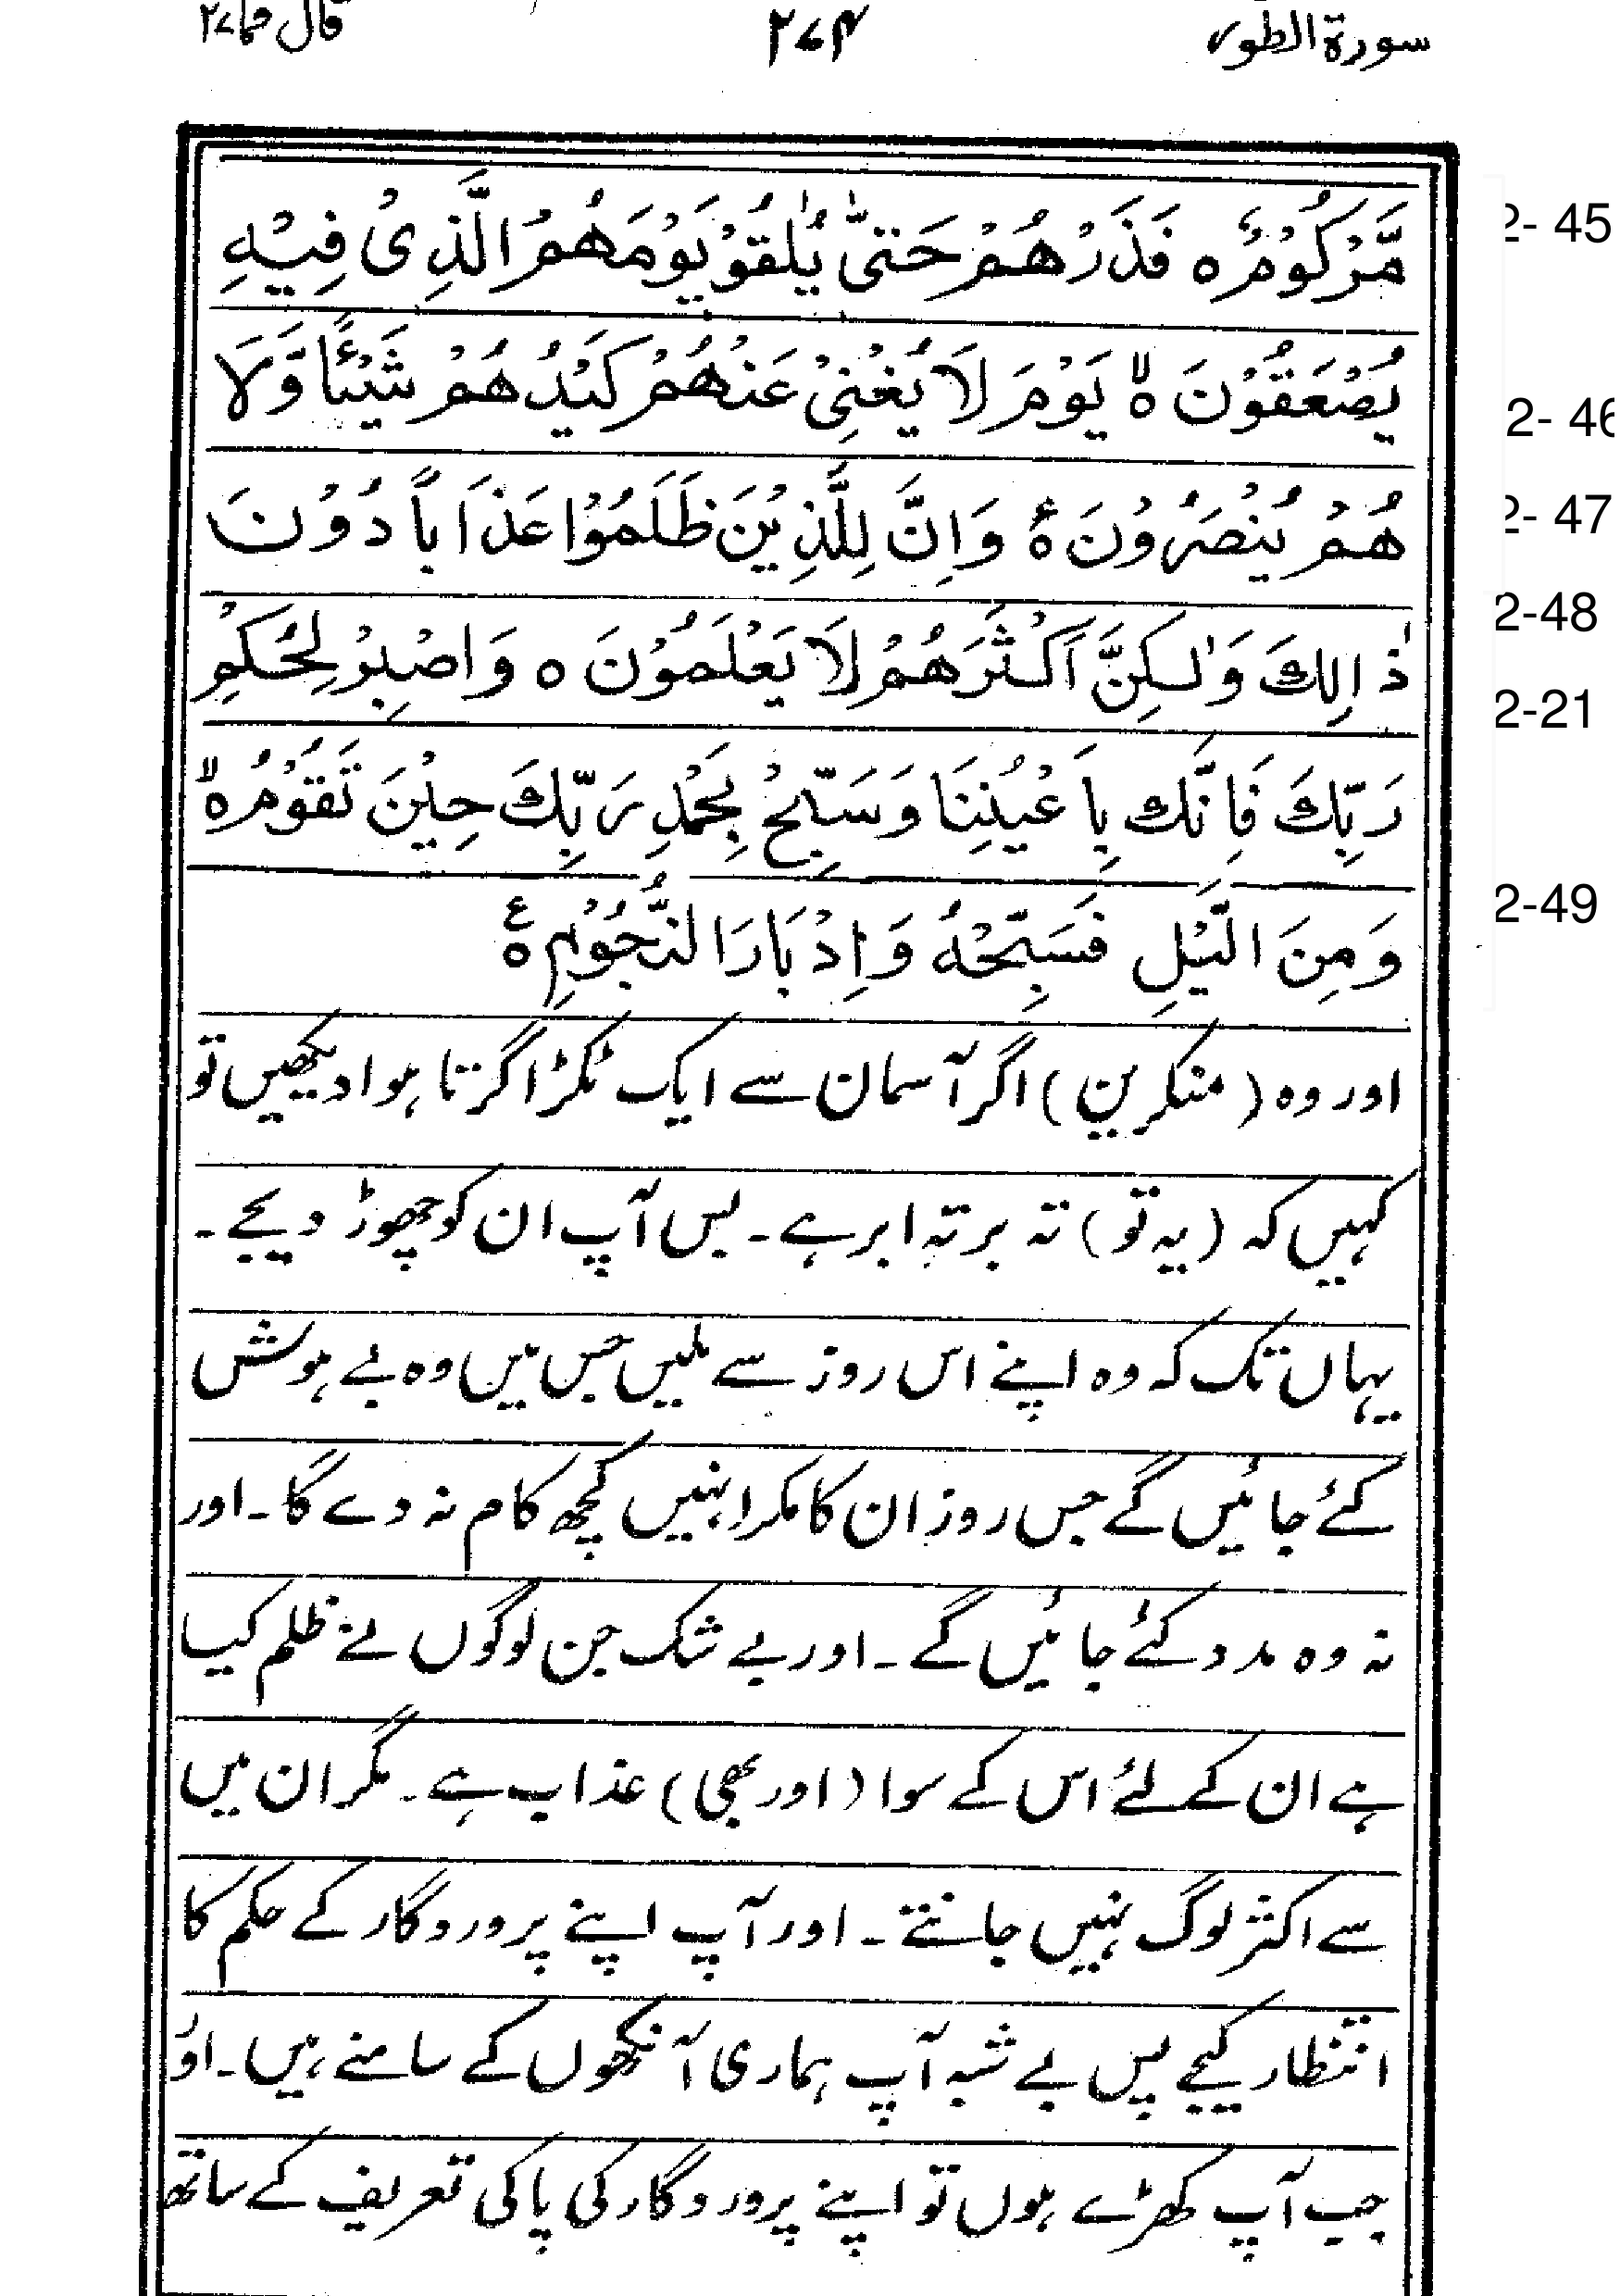 سورة الطور ۲۷۴ قال فما ۲۷
مَّرْكُوْمٌ ه فَذَرْهُمْ حَتّٰى يُلٰقُوْ يَوْمَهُمُ الَّذِىْ فِيْهِ 2- 45
يُصْعَقُوْنَ ه لا يَوْمَ لَا يُغْنِىْ عَنْهُمْ كَيْدُهُمْ شَيْئًا وَّلَا 2- 46
هُمْ يُنْصَرُوْنَ ه ع وَاِنَّ لِلَّذِيْنَ ظَلَمُوْا عَذَاباً دُوْنَ 2- 47
ذٰالِكَ وَلٰكِنَّ اَكْثَرَهُمْ لَا يَعْلَمُوْنَ ه وَاصْبِرْ لِحُكْمِ 2-48
رَبِّكَ فَاِنَّكَ بِاَعْيُنِنَا وَسَبِّحْ بِحَمْدِ رَبِّكَ حِيْنَ تَقُوْمُ ه لا 2-21
وَمِنَ الَّيْلِ فَسَبِّحْهُ وَاِدْبَارَ النُّجُوْمِ ه ع 2-49
اور وہ (منکرین) اگر آسمان سے ایک ٹکڑا گرتا ہوا دیکھیں تو
کہیں کہ (یہ تو) تہ بر تہ ابر ہے۔ پس آپ ان کو چھوڑ دیجے۔
یہاں تک کہ وہ اپنے اس روز سے ملیں جس میں وہ بے ہوش
کئے جائیں گے جس روز ان کا مکر انہیں کچھ کام نہ دے گا۔ اور
نہ وہ مدد کئے جائیں گے۔ اور بے شک جن لوگوں نے ظلم کیا
ہے ان کے لئے اس کے سوا (اور بھی) عذاب ہے۔ مگر ان میں
سے اکثر لوگ نہیں جانتے۔ اور آپ اپنے پروردگار کے حکم کا
انتظار کیجے پس بے شبہ آپ ہماری آنکھوں کے سامنے ہیں۔ اور
جب آپ کھڑے ہوں تو اپنے پروردگار کی پاکی تعریف کے ساتھ